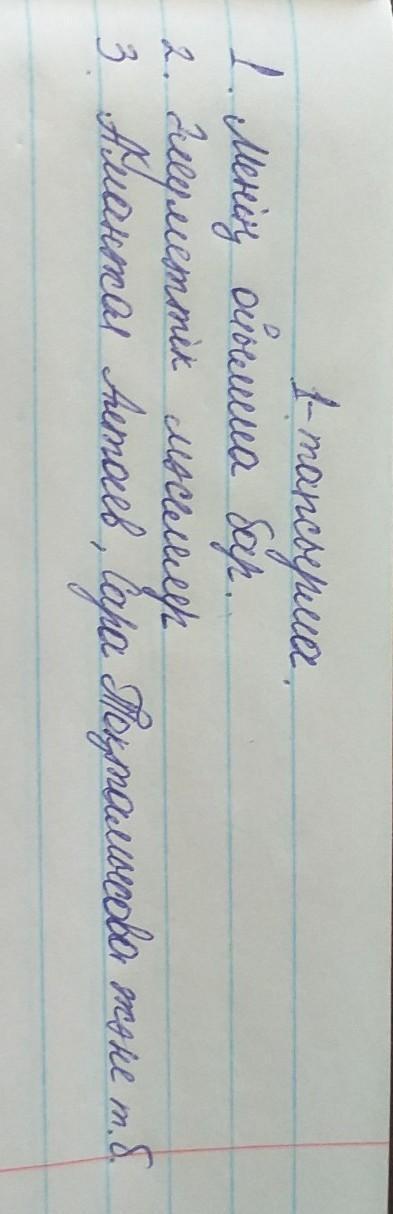 1-тапсырма.
1. Менің ойымша бар.
2. Әлеуметтік мәселелер
3. Амантай Ақтаев, Сара Тоқтамысова және т.б.